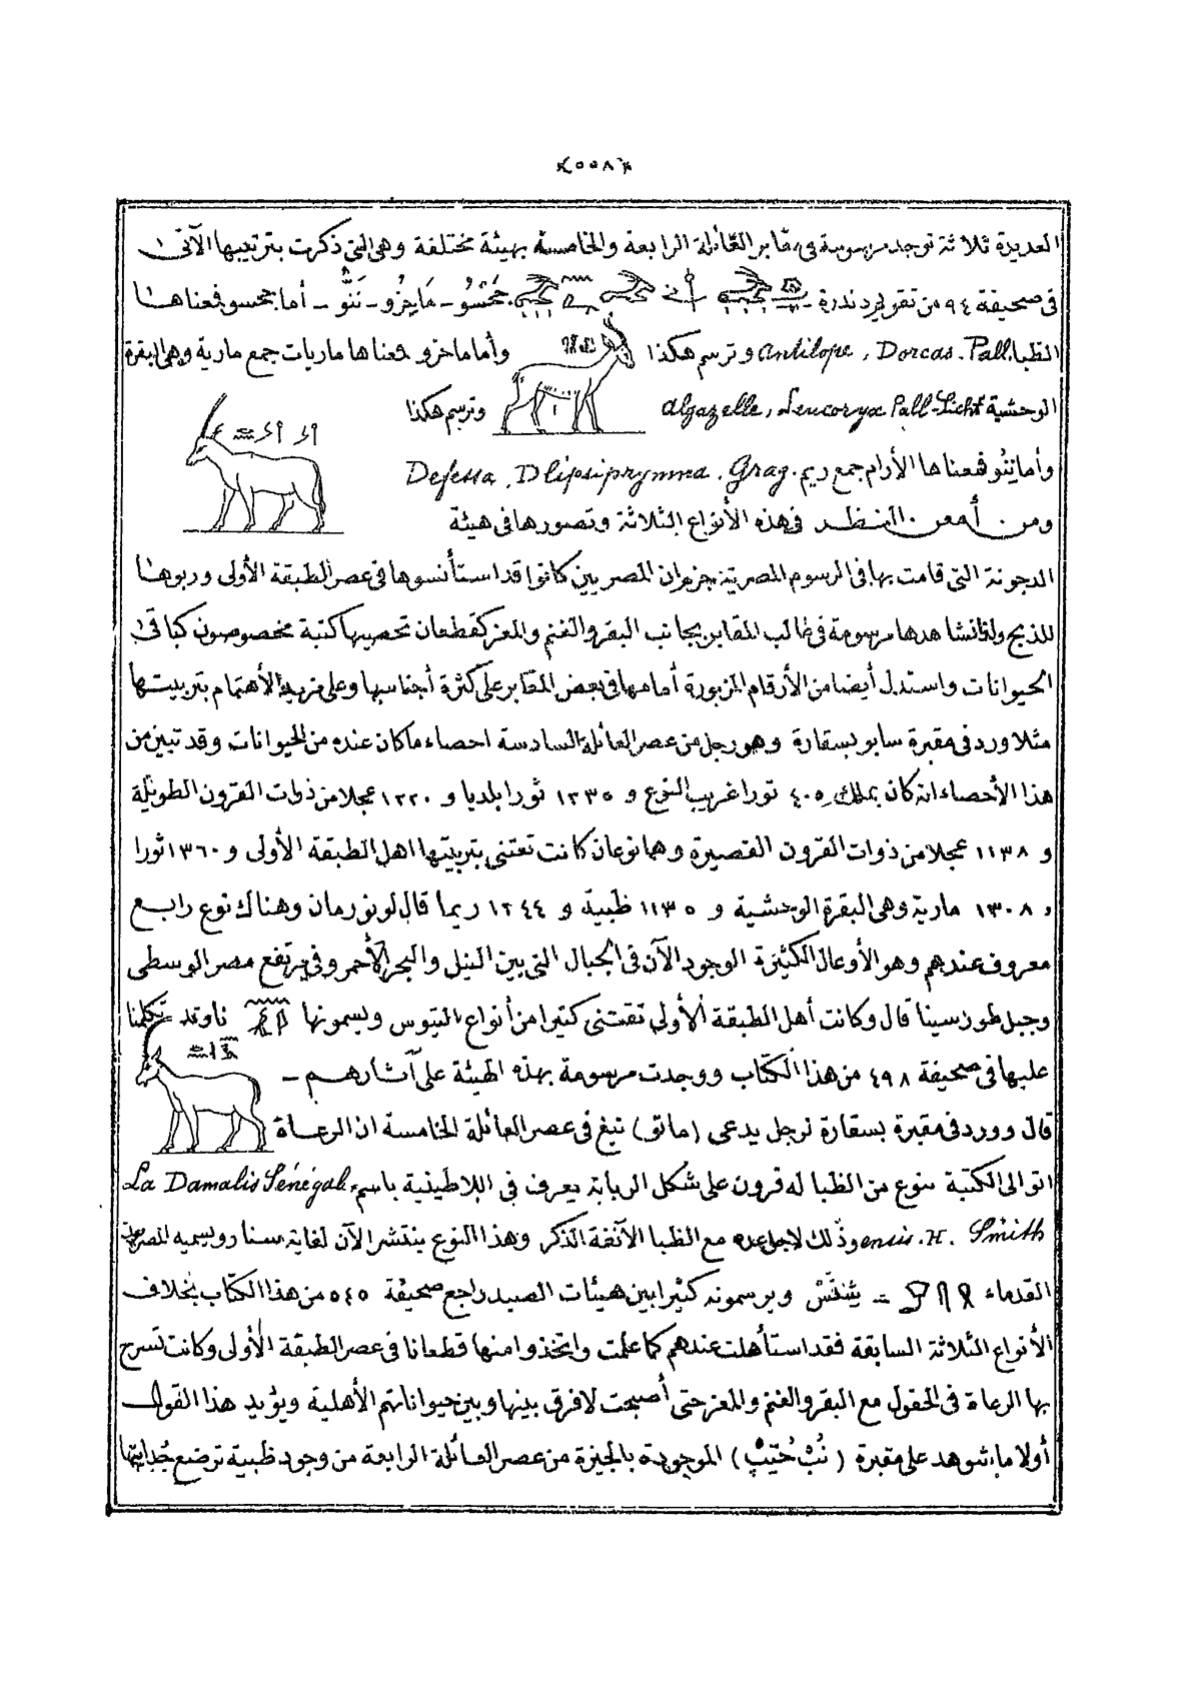 ﴿٥٥٨﴾
العديدة ثلاثة توجد مرسومة فى مقابر العائلة الرابعة والخامسة بهيئة مختلفة وهى التى ذكرت بترتيبها الآتى
فى صحيفة ٩٤ من تقرير دندرة ـ جَحْسُو ـ مَايخزُو ـ نَنُّو ـ أما جحسو فمعناها
الظبا Antilope, Dorcas. Pall وترسم هكذا وأما ماخزو فمعناها ماريات جمع مارية وهى البقرة
الوحشية algazelle, Leucoryx Pall-Licht وترسم هكذا
وأما ننُو فمعناها الأرام جمع ريم Defessa, Dlipsiprymma. Gray.
ومن أمعن النظر فى هذه الأنواع الثلاثة وتصورها فى هيئة
الدجونة التى قامت بها فى الرسوم المصرية جزم ان المصريين كانوا قد استأنسوها فى عصر الطبقة الأولى وربوها
للذبح ولذا نشاهدها مرسومة فى غالب المقابر بجانب البقر والغنم والمعز كقطعان تحصيها كتبة مخصوصون كباقى
الحيوانات واستدل أيضا من الأرقام المزبورة أمامها فى بعض المقابر على كثرة أجناسها وعلى مزيد الأهتمام بتربيتها
مثلا ورد فى مقبرة سابو بسقارة وهو رجل من عصر العائلة السادسة احصاء ما كان عنده من الحيوانات وقد تبين من
هذا الأحصاء انه كان يملك ٤٠٥ ثورا غريب النوع و ١٢٣٥ ثورا بلديا و ١٢٢٠ عجلا من ذوات القرون الطويلة
و ١١٣٨ عجلا من ذوات القرون القصيرة وهما نوعان كانت تعتنى بتربيتها اهل الطبقة الأولى و ١٣٦٠ ثورا
و ١٣٠٨ مارية وهى البقرة الوحشية و ١١٣٥ ظبية و ١٢٤٤ ريما قال لونورمان وهناك نوع رابع
معروف عندهم وهو الأوعال الكثيرة الوجود الآن فى الجبال التى بين النيل والبحر الأحمر وفى مرتفع مصر الوسطى
وجبل طور سينا قال وكانت أهل الطبقة الأولى تقتنى كثيرا من أنواع التيوس ويسمونها ناو وقد تكلمنا
عليها فى صحيفة ٤٩٨ من هذا الكتاب ووجدت مرسومة بهذه الهيئة على آثارهم ـ
قال وورد فى مقبرة بسقارة لرجل يدعى (مانو) نبغ فى عصر العائلة الخامسة ان الرعاة
اتوا الى الكتبة بنوع من الظبا له قرون على شكل الربابة يعرف فى اللاطينية باسم La Damalis Sénégal
ensis. H. Smith وذلك لاجل عده مع الظبا الآنفة الذكر وهذا النوع ينتشر الآن لغاية سنار ويسميه المصريون
القدماء = شِشَسْ ويرسمونه كثيرا بين هيئات الصيد راجع صحيفة ٥٤٥ من هذا الكتاب بخلاف
الأنواع الثلاثة السابقة فقد استأهلت عندهم كما علمت واتخذوا منها قطعانا فى عصر الطبقة الأولى وكانت تسرح
بها الرعاة فى الحقول مع البقر والغنم والمعز حتى أصبحت لا فرق بينها وبين حيواناتهم الأهلية ويؤيد هذا القول
أولا ما شوهد على مقبرة (نُبْ حُتِبْ) الموجودة بالجيزة من عصر العائلة الرابعة من وجود ظبية ترضع جدايتها